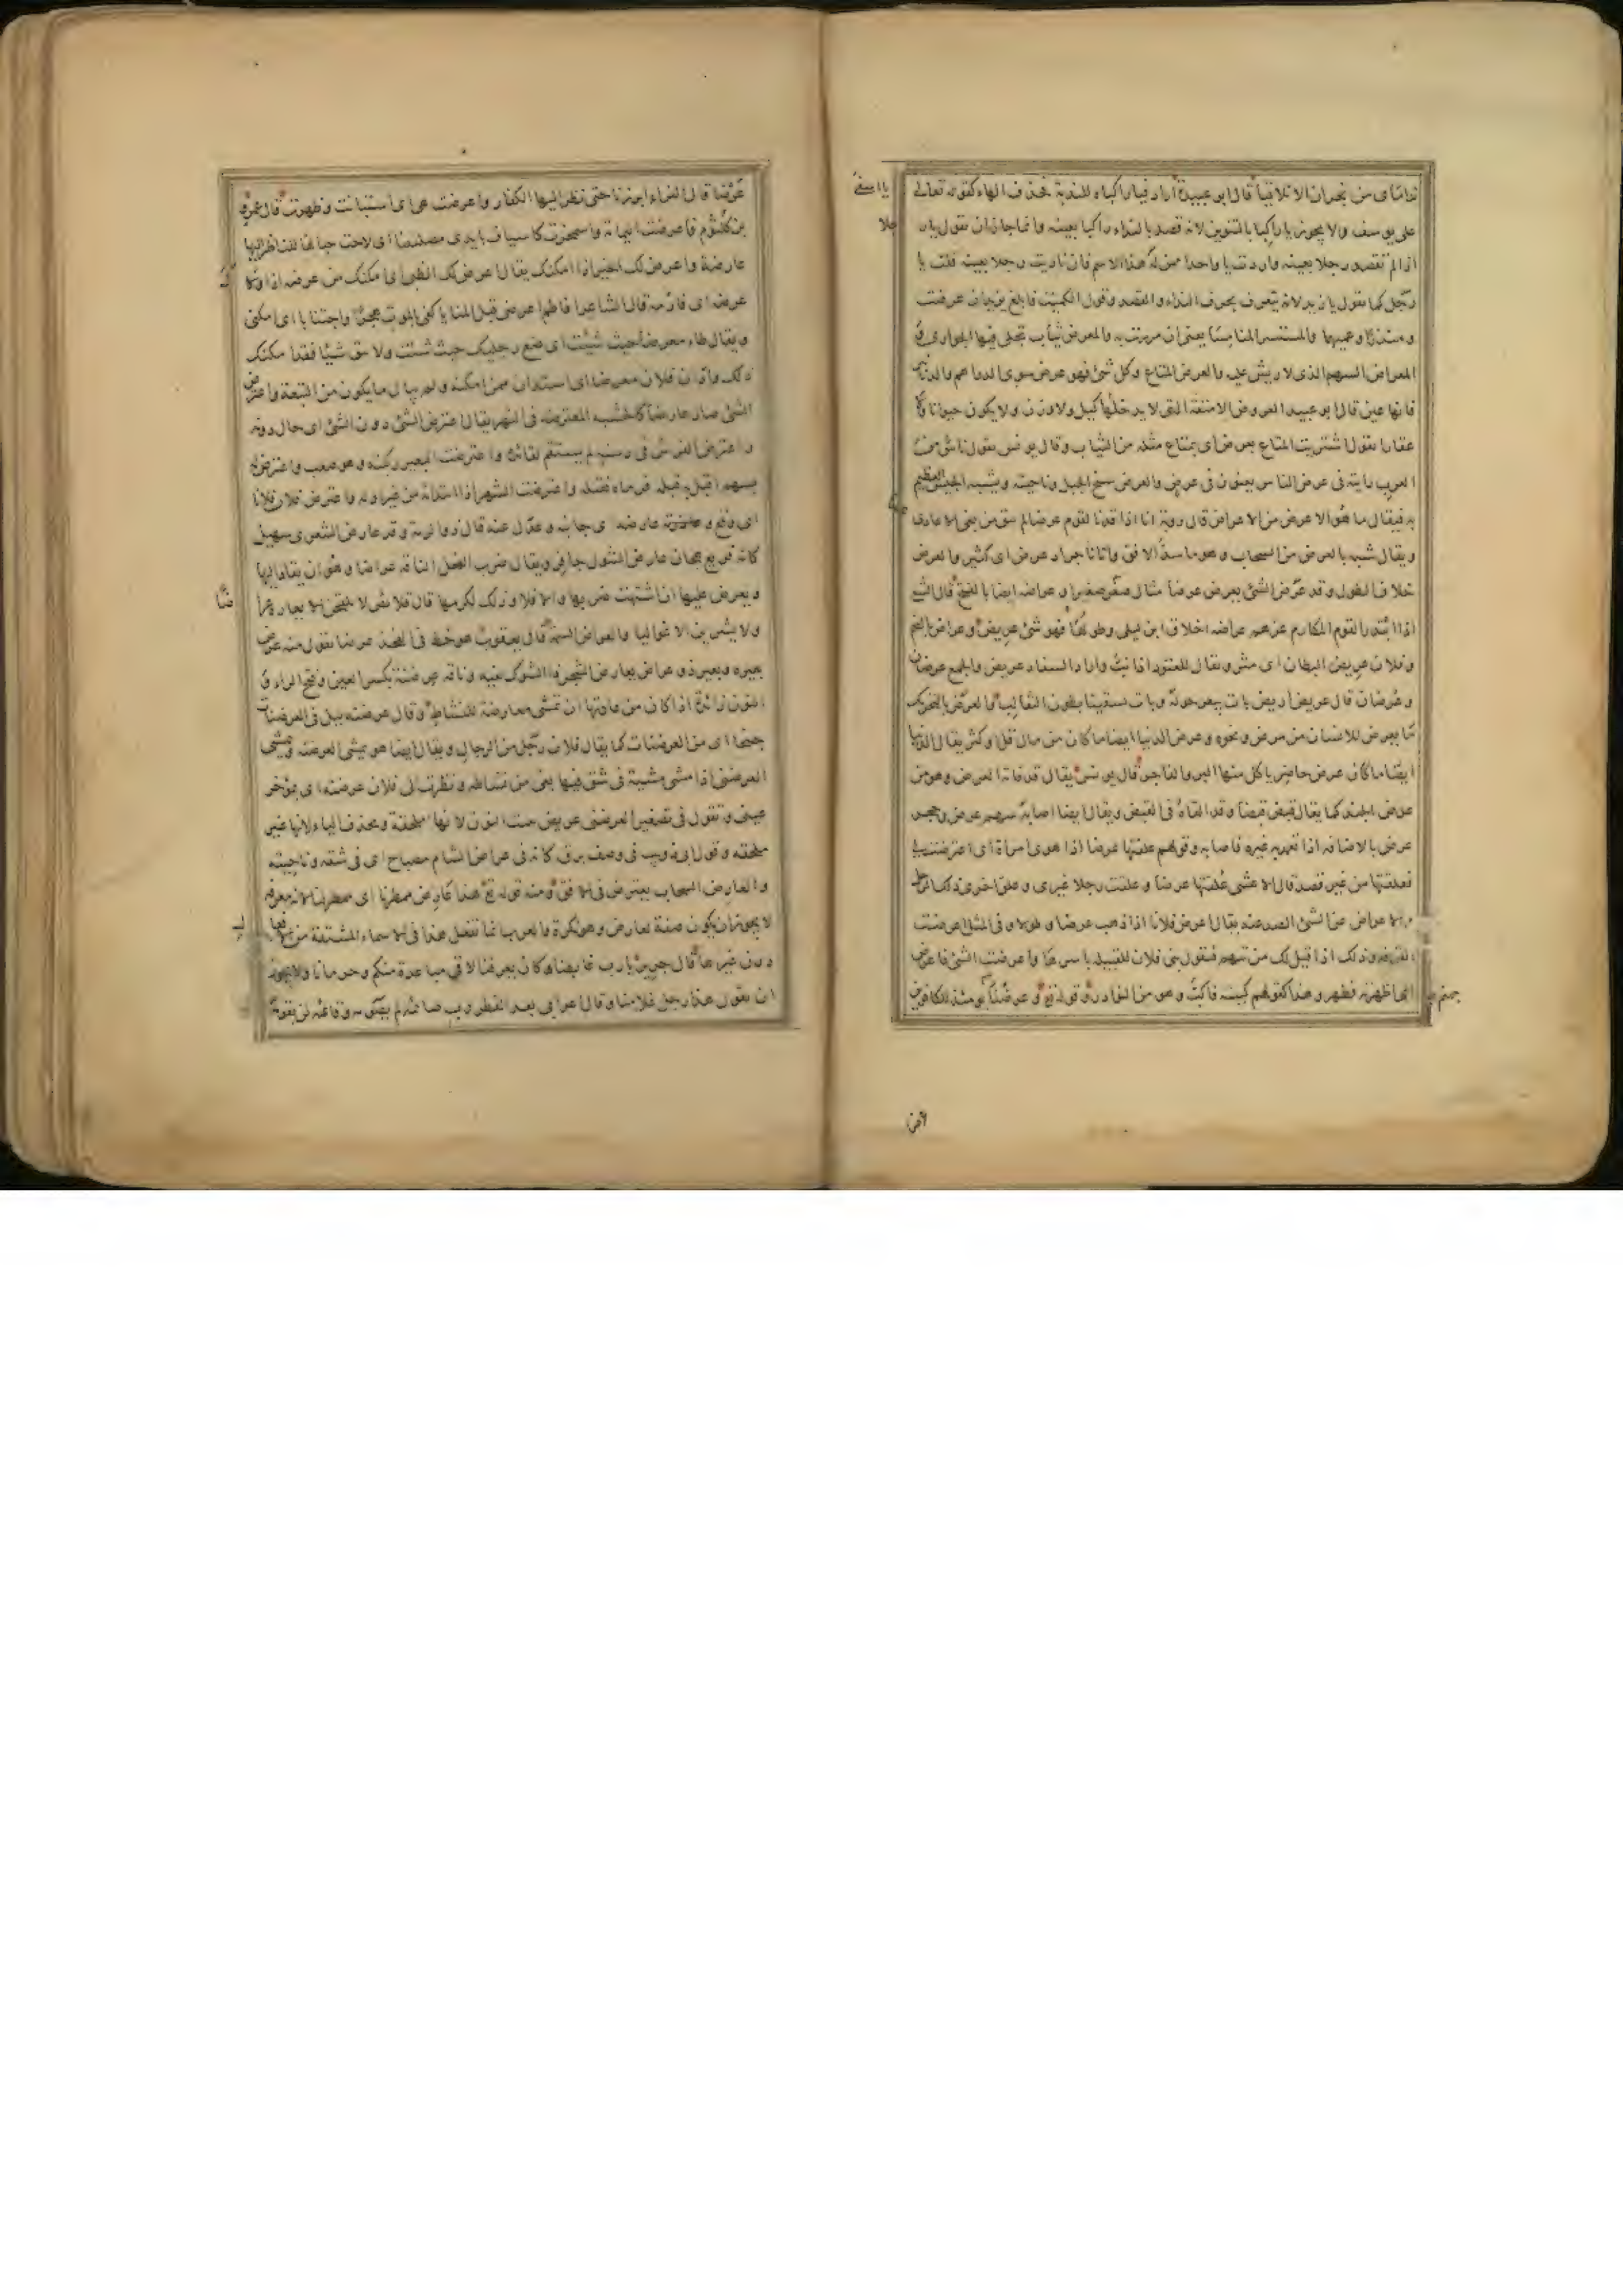 نداماى من نجران الا تلاقيا قال ابو عبيدة اراد فيا راكباه للندبة فحذف الهاء كقوله تعالى
يا اسفى
على يوسف ولا يجوز يا راكبا بالتنوين لانه قصد بالنداء راكبا بعينه وانما جاز ان تقول يا رجلا
اذا لم تقصد رجلا بعينه واردت يا واحدا ممن له هذا الاسم فان ناديت رجلا بعينه قلت يا
رجل كما تقول يا زيد لانه يتعرف بحرف النداء والقصد وقول الكميت فابلغ يزيد ان عرضت
ومنذرا وعميهما والمستسر المنامسا يعنى ان مررت به والمعرض ثياب تجلى فيها الجوارى و
المعراض السهم الذى لا ريش عليه والعرض المتاع وكل شئ فهو عرض سوى الدراهم والدنانير
فانها عين قال ابو عبيد العروض الامتعة التى لا يدخلها كيل ولا وزن ولا يكون حيوانا ولا
عقارا تقول اشتريت المتاع بعرض اى بمتاع مثله من الثياب وقال يونس يقول ناس من
العرب رايته فى عرض الناس يعنون فى عرض والعرض سفح الجبل وناحيته ويشبه الجيش العظيم
به فيقال ما هو الا عرض من الاعراض قال رؤبة انا اذا قدنا لقوم عرضا لم نبق من بغى الاعادى
ويقال شبه بالعرض من السحاب وهو ما سد الافق واتانا جراد عرض اى كثير والعرض
خلاف الطول وقد عرض الشئ يعرض عرضا مثال صغر صغرا وعراضة ايضا بالفتح قال الشاعر
اذا ابتدر القوم المكارم عزهم عراضة اخلاق ابن ليلى وطولها فهو شئ عريض وعراض بالضم
وفلان عريض البطان اى مثر ويقال للعتود اذا نب واراد السفاد عريض والجمع عرضان
وعرضان قال عريض اريض بات ييعر حوله وبات يسقينا بطون الثعالب والعرض بالتحريك
ما يعرض للانسان من مرض ونحوه وعرض الدنيا ايضا ما كان من مال قل او كثر يقال الدنيا
عرض حاضر ياكل منها البر والفاجر قال يونس يقال قد فاته العرض وهو من
عرض الجند كما يقال قبض قبضا وقد القاه فى القبض ويقال ايضا اصابه سهم عرض وحجر
عرض بالاضافة اذا تعمد به غيره فاصابه وقولهم علقتها عرضا اذا هوى امراة اى اعترضت لى
فعلقتها من غير قصد قال الاعشى علقتها عرضا وعلقت رجلا غيرى وعلق اخرى ذلك الرجل
والاعراض عن الشئ الصد عنه يقال اعرض فلان اذا ذهب عرضا وطولا وفى المثل اعرضت
القرفة وذلك اذا قيل لك من تتهم فتقول بنى فلان للقبيلة باسرها واعرضت الشئ فاعرض
اى اظهرته فظهر وهذا كقولهم كببته فاكب وهو من النوادر وقوله تع وعرضنا جهنم يومئذ للكافرين
عرضا قال الفراء ابرزناها حتى نظر اليها الكفار واعرضت هى اى استبانت وظهرت قال عمرو
بن كلثوم فاعرضت اليمامة واشمخرت كاسياف بايدى مصلتينا اى لاحت جبالها للناظر اليها
عارضة واعرض لك الخير اذا امكنك يقال اعرض لك الظبى اى امكنك من عرضه اذا ولاك
عرضه اى فارمه قال الشاعر افاطم اعرضى قبل المنايا كفى بالموت هجرا واجتنابا اى امكنى
ويقال طاء معرضا حيث شئت اى ضع رجليك حيث شئت ولا تتق شيئا فقد امكنك
ذلك وادان فلان معرضا اى استدان ممن امكنه ولم يبال ما يكون من التبعة واعترض
الشئ صار عارضا كالخشبة المعترضة فى النهر يقال اعترض الشئ دون الشئ اى حال دونه
واعترض الفرس فى رسنه لم يستقم لقائده واعترضت البعير ركبته وهو صعب واعترض له
بسهم اقبل به قبله فرماه فقتله واعترضت الشهر اذا ابتدأته من غير اوله واعترض فلان فلانا
اى وقع فيه وعارضه اى جانبه وعدل عنه قال ذو الرمة وقد عارض الشعرى سهيل
كانه قريع هجان عارض الشول جافر ويقال ضرب الفحل الناقة عراضا وهو ان يقاد اليها
ويعرض عليها ان اشتهت ضربها والا فلا وذلك لكرمها قال قلائص لا يلقحن الا يعارة عراضا
ولا يشرين الا غواليا والعراض السمة قال يعقوب هو خط فى الفخذ عرضا تقول منه عرض
بعيره وبعير ذو عراض يعارض الشجر ذا الشوك بفيه وناقة عرضنة بكسر العين وفتح الراء و
النون زائدة اذا كان من عادتها ان تمشى معارضة للنشاط وقال عرضنة ليل فى العرضنات
جنحا اى من العرضنات كما يقال فلان رجل من الرجال ويقال ايضا هو يمشى العرضنة ويمشى
العرضنى اذا مشى مشية فى شق فيها بغى من نشاطه ونظرت الى فلان عرضنة اى بمؤخر
عينى وتقول فى تصغير العرضنى عريضن تثبت النون لانها ملحقة وتحذف الياء لانها غير
ملحقة وقول ابى ذويب فى وصف برق كانه فى عراض الشام مصباح اى فى شقه وناحيته
والعارض السحاب يعترض فى الافق ومنه قوله تع هذا عارض ممطرنا اى ممطر لنا لانه معرفة
لا يجوز ان يكون صفة لعارض وهو نكرة والعرب انما تفعل هذا فى الاسماء المشتقة من الفعل
دون غيرها قال جرير يا رب غابطنا لو كان يعرفكم لاقى مباعدة منكم وحرمانا ولا يجوز
ان تقول هذا رجل غلامنا وقال اعرابى بعد الفطر رب صائمه لم يصومه وقائمه لن يقومه